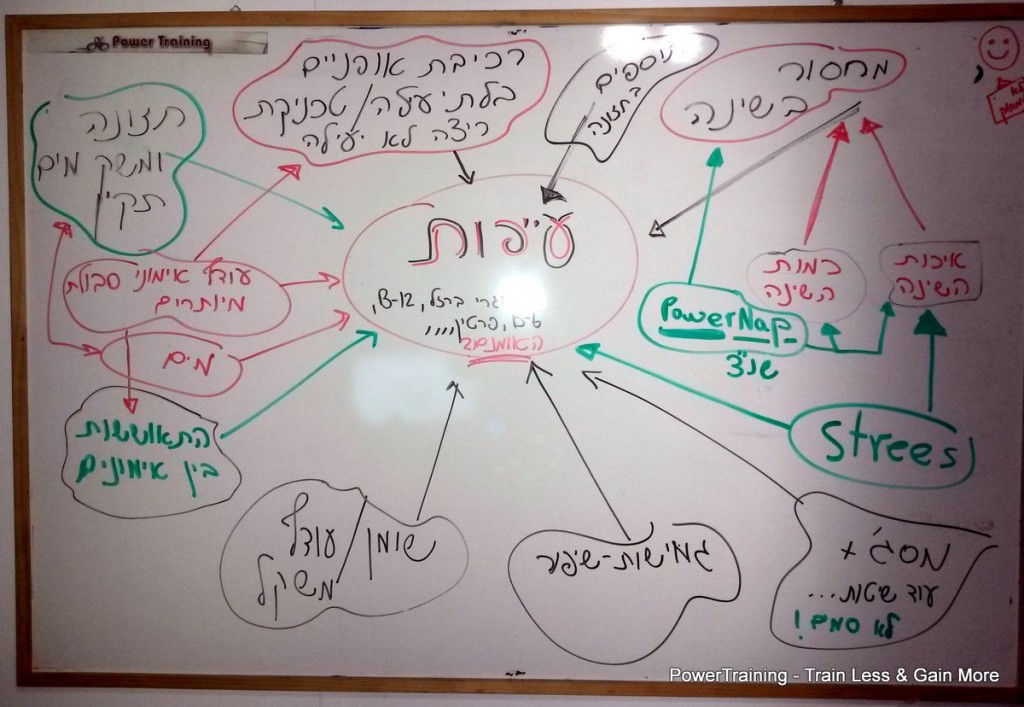 Power Training
רכיבת אופניים
בלתי יעלה/טכניקת
ריצה לא יעילה
נוספים
בתזונה
מחסור
בשינה
תזונה
ומשק מים
תקין
עייפות
ברזל, B-12,
B-6, פרטין,,,,
האומנם?
עודף אימוני סבולת
מיותרים
מים
התאוששות
בין אימונים
כמות
השינה
איכות
השינה
PowerNap
שנ"צ
Strees
שומן/עודף
משקל
גמישות-שיפור
מסג' +
עוד שטות...
לא סמים!
PowerTraining - Train Less & Gain More